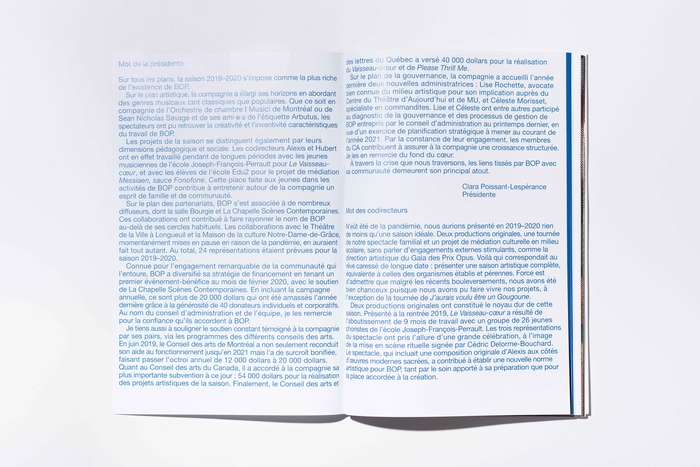 Mot de la présidente
Sur tous les plans, la saison 2019-2020 s'impose comme la plus riche
de l'existence de BOP.
Sur le plan artistique, la compagnie a élargi ses horizons en abordant
des genres musicaux tant classiques que populaires. Que ce soit en
compagnie de l'Orchestre de chambre I Musici de Montréal ou de
Sean Nicholas Savage et de ses ami·e·s de l'étiquette Arbutus, les
spectateurs ont pu retrouver la créativité et l'inventivité caractéristiques
du travail de BOP.
Les projets de la saison se distinguent également par leurs
dimensions pédagogique et sociale. Les codirecteurs Alexis et Hubert
ont en effet travaillé pendant de longues périodes avec les jeunes
musiciennes de l'école Joseph-François-Perrault pour Le Vaisseau-
cœur, et avec les élèves de l'école Edu2 pour le projet de médiation
Messiaen, sauce Fonofone. Cette place faite aux jeunes dans les
activités de BOP contribue à entretenir autour de la compagnie un
esprit de famille et de communauté.
Sur le plan des partenariats, BOP s'est associée à de nombreux
diffuseurs, dont la salle Bourgie et La Chapelle Scènes Contemporaines.
Ces collaborations ont contribué à faire rayonner le nom de BOP
au-delà de ses cercles habituels. Les collaborations avec le Théâtre
de la Ville à Longueuil et la Maison de la culture Notre-Dame-de-Grâce,
momentanément mises en pause en raison de la pandémie, en auraient
fait tout autant. Au total, 24 représentations étaient prévues pour la
saison 2019-2020.
Connue pour l'engagement remarquable de la communauté qui
l'entoure, BOP a diversifié sa stratégie de financement en tenant un
premier événement-bénéfice au mois de février 2020, avec le soutien
de La Chapelle Scènes Contemporaines. En incluant la campagne
annuelle, ce sont plus de 20 000 dollars qui ont été amassés l'année
dernière grâce à la générosité de 40 donateurs individuels et corporatifs.
Au nom du conseil d'administration et de l'équipe, je les remercie
pour la confiance qu'ils accordent à BOP.
Je tiens aussi à souligner le soutien constant témoigné à la compagnie
par ses pairs, via les programmes des différents conseils des arts.
En juin 2019, le Conseil des arts de Montréal a non seulement reconduit
son aide au fonctionnement jusqu'en 2021 mais l'a de surcroît bonifiée,
faisant passer l'octroi annuel de 12 000 dollars à 20 000 dollars.
Quant au Conseil des arts du Canada, il a accordé à la compagnie sa
plus importante subvention à ce jour : 54 000 dollars pour la réalisation
des projets artistiques de la saison. Finalement, le Conseil des arts et
des lettres du Québec a versé 40 000 dollars pour la réalisation
du Vaisseau-cœur et de Please Thrill Me.
Sur le plan de la gouvernance, la compagnie a accueilli l'année
dernière deux nouvelles administratrices : Lise Rochette, avocate
bien connue du milieu artistique pour son implication auprès du
Centre du Théâtre d'Aujourd'hui et de MU, et Céleste Morisset,
spécialiste en commandites. Lise et Céleste ont entre autres participé
au diagnostic de la gouvernance et des processus de gestion de
BOP entrepris par le conseil d'administration au printemps dernier, en
vue d'un exercice de planification stratégique à mener au courant de
l'année 2021. Par la constance de leur engagement, les membres
du CA contribuent à assurer à la compagnie une croissance structurée.
Je les en remercie du fond du cœur.
À travers la crise que nous traversons, les liens tissés par BOP avec
sa communauté demeurent son principal atout.
Clara Poissant-Lespérance
Présidente
Mot des codirecteurs
N'eût été de la pandémie, nous aurions présenté en 2019-2020 rien
de moins qu'une saison idéale. Deux productions originales, une tournée
de notre spectacle familial et un projet de médiation culturelle en milieu
scolaire, sans parler d'engagements externes stimulants, comme la
direction artistique du Gala des Prix Opus. Voilà qui correspondait au
rêve caressé de longue date : présenter une saison artistique complète,
équivalente à celles des organismes établis et pérennes. Force est
d'admettre que malgré les récents bouleversements, nous avons été
bien chanceux puisque nous avons pu faire vivre nos projets, à
l'exception de la tournée de J'aurais voulu être un Gougoune.
Deux productions originales ont constitué le noyau dur de cette
saison. Présenté à la rentrée 2019, Le Vaisseau-cœur a résulté de
l'aboutissement de 9 mois de travail avec un groupe de 26 jeunes
choristes de l'école Joseph-François-Perrault. Les trois représentations
du spectacle ont pris l'allure d'une grande célébration, à l'image
de la mise en scène rituelle signée par Cédric Delorme-Bouchard.
Le spectacle, qui incluait une composition originale d'Alexis aux côtés
d'œuvres modernes sacrées, a contribué à établir une nouvelle norme
artistique pour BOP, tant par le soin apporté à sa préparation que pour
la place accordée à la création.